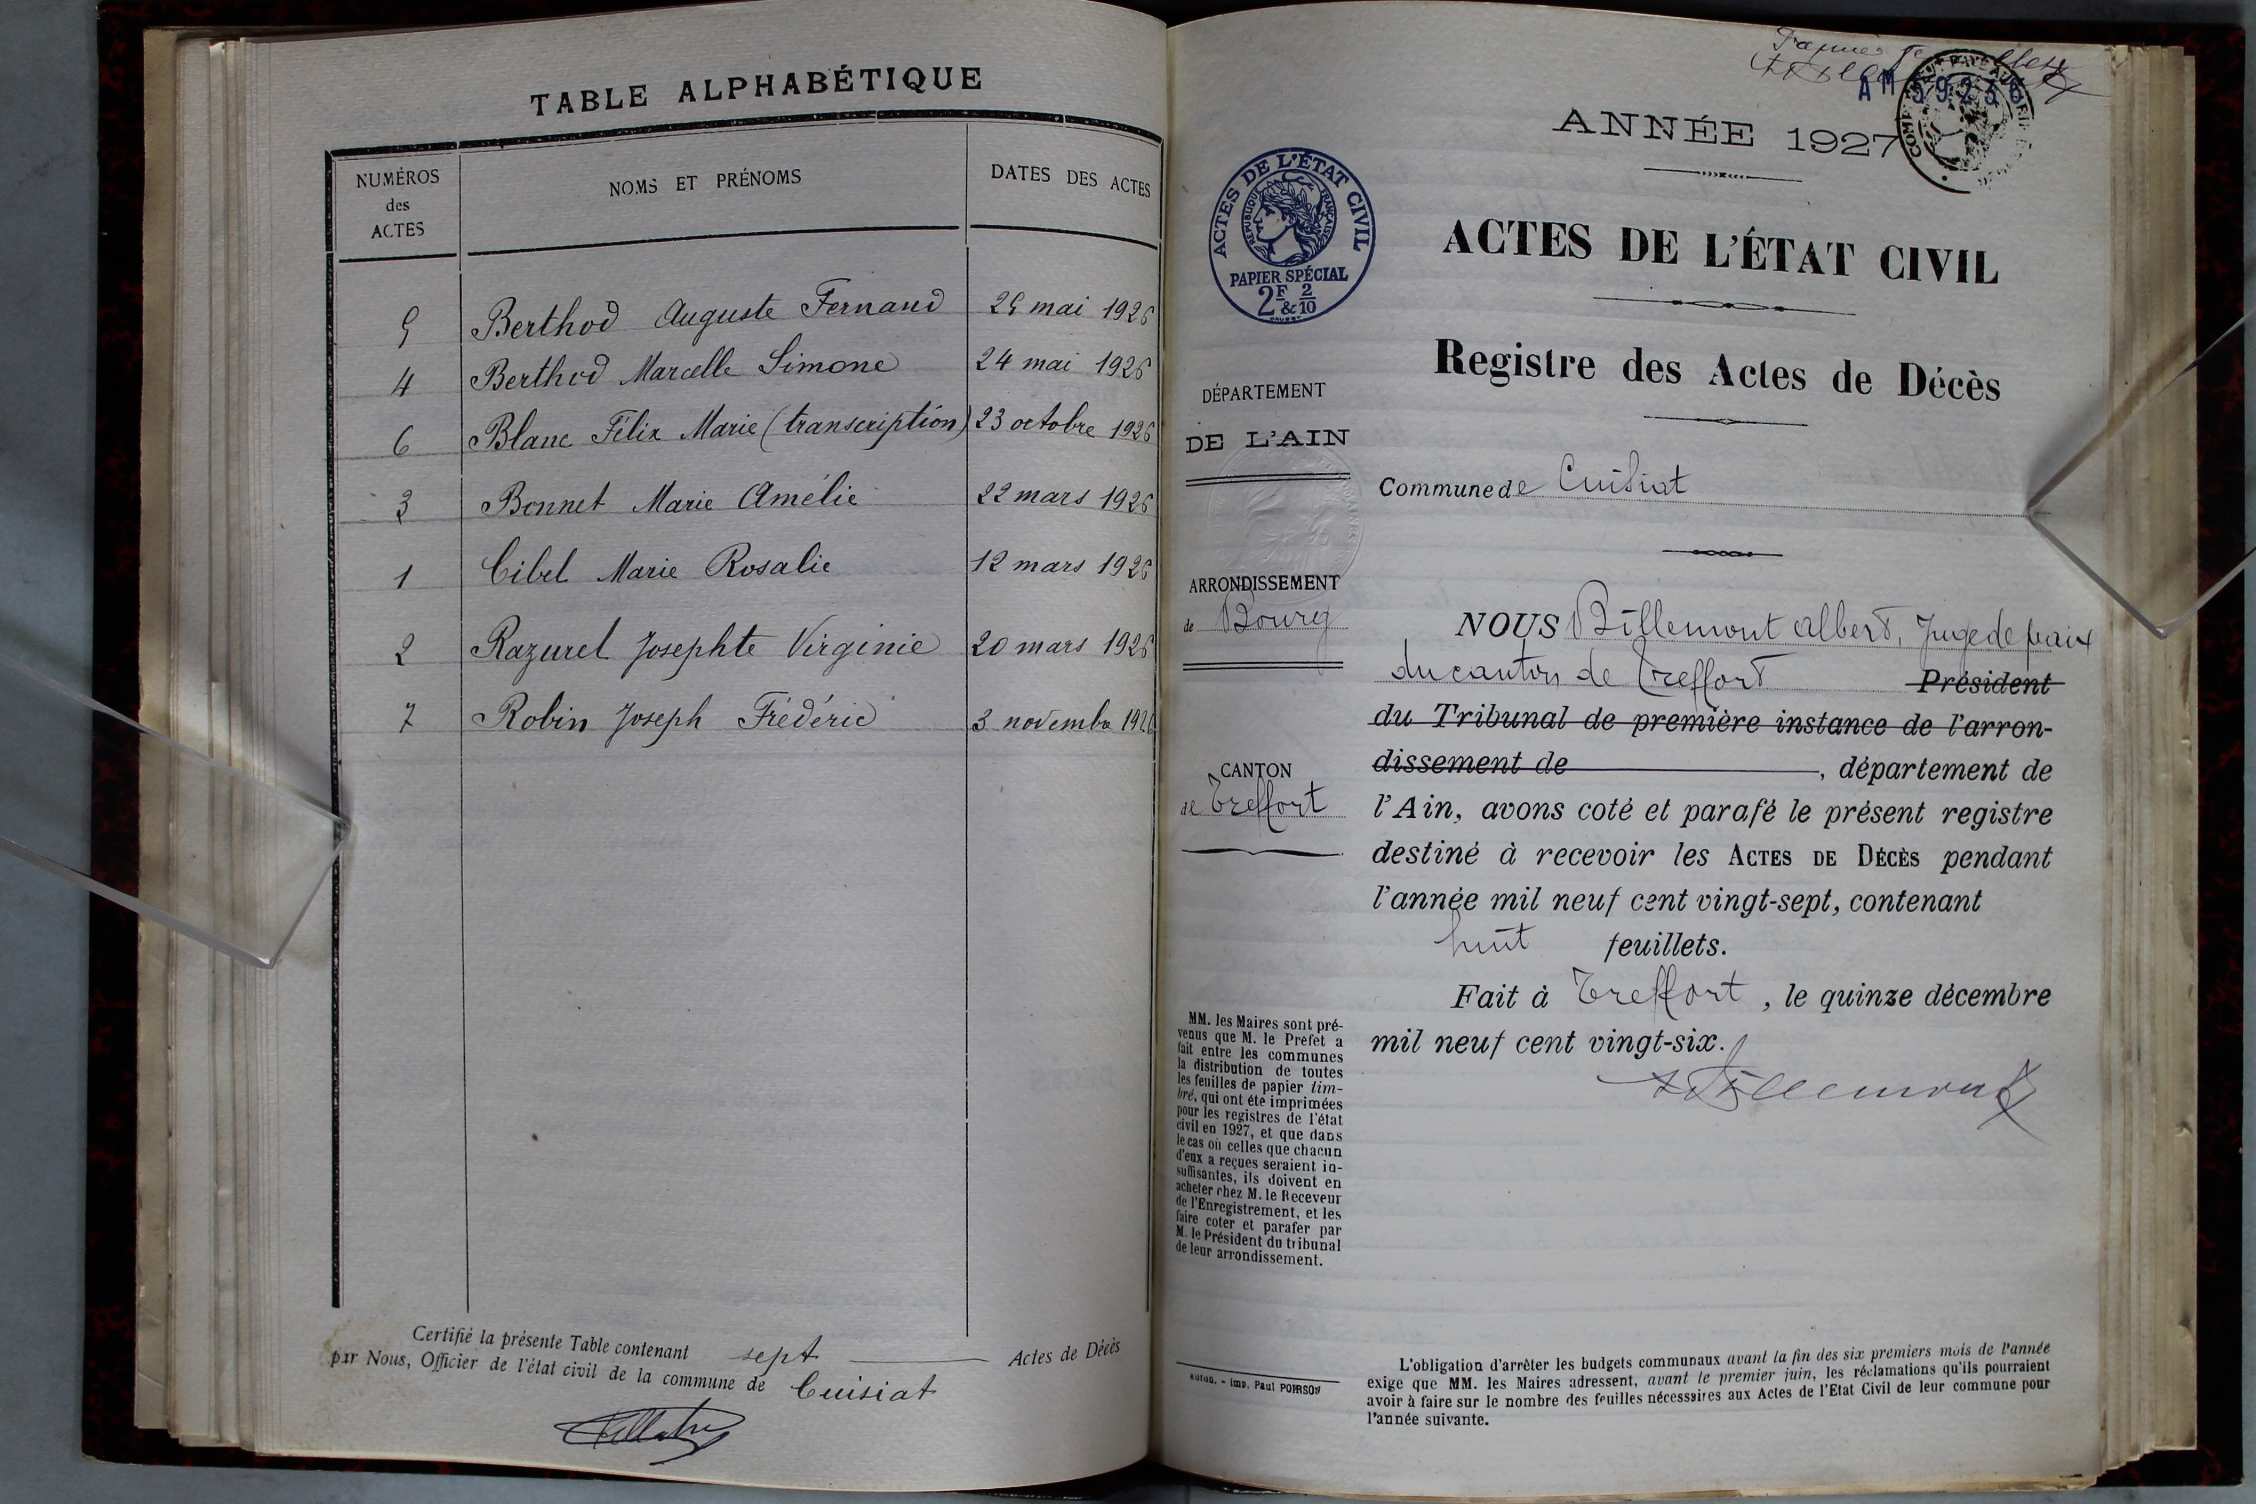 TABLE ALPHABÉTIQUE
NUMÉROS des ACTES
NOMS ET PRÉNOMS
DATES DES ACTES
5 Berthod Auguste Fernand 25 mai 1926
4 Berthod Marcelle Simone 24 mai 1926
6 Blanc Félix Marie (transcription) 23 octobre 1926
3 Bonnet Marie Amélie 22 mars 1926
1 Cibel Marie Rosalie 12 mars 1926
2 Razurel Josephte Virginie 20 mars 1926
7 Robin Joseph Frédéric 3 novembre 1926
Certifié la présente Table contenant sept Actes de Décès
par Nous, Officier de l'état civil de la commune de Cuisiat
AM 5923
ANNÉE 1927
ACTES DE L'ÉTAT CIVIL
RÉPUBLIQUE FRANÇAISE
PAPIER SPÉCIAL
2F & 2/10
ACTES DE L'ÉTAT CIVIL
Registre des Actes de Décès
DÉPARTEMENT
DE L'AIN
Commune de Cuisiat
ARRONDISSEMENT
de Bourg
CANTON
de Treffort
NOUS Billemont Albert, Juge de paix
du canton de Treffort Président
du Tribunal de première instance de l'arron-
dissement de , département de
l'Ain, avons coté et parafé le présent registre
destiné à recevoir les ACTES DE DÉCÈS pendant
l'année mil neuf cent vingt-sept, contenant
huit feuillets.
Fait à Treffort, le quinze décembre
mil neuf cent vingt-six.
Billemont
MM. les Maires sont pré-
venus que M. le Préfet a
fait entre les communes
la distribution de toutes
les feuilles de papier tim-
bré, qui ont été imprimées
pour les registres de l'état
civil en 1927, et que dans
le cas où celles que chacun
d'eux a reçues seraient in-
suffisantes, ils doivent en
acheter chez M. le Receveur
de l'Enregistrement, et les
faire coter et parafer par
M. le Président du tribunal
de leur arrondissement.
Imp. Paul POIRSON
L'obligation d'arrêter les budgets communaux avant la fin des six premiers mois de l'année
exige que MM. les Maires adressent, avant le premier juin, les réclamations qu'ils pourraient
avoir à faire sur le nombre des feuilles nécessaires aux Actes de l'Etat Civil de leur commune pour
l'année suivante.